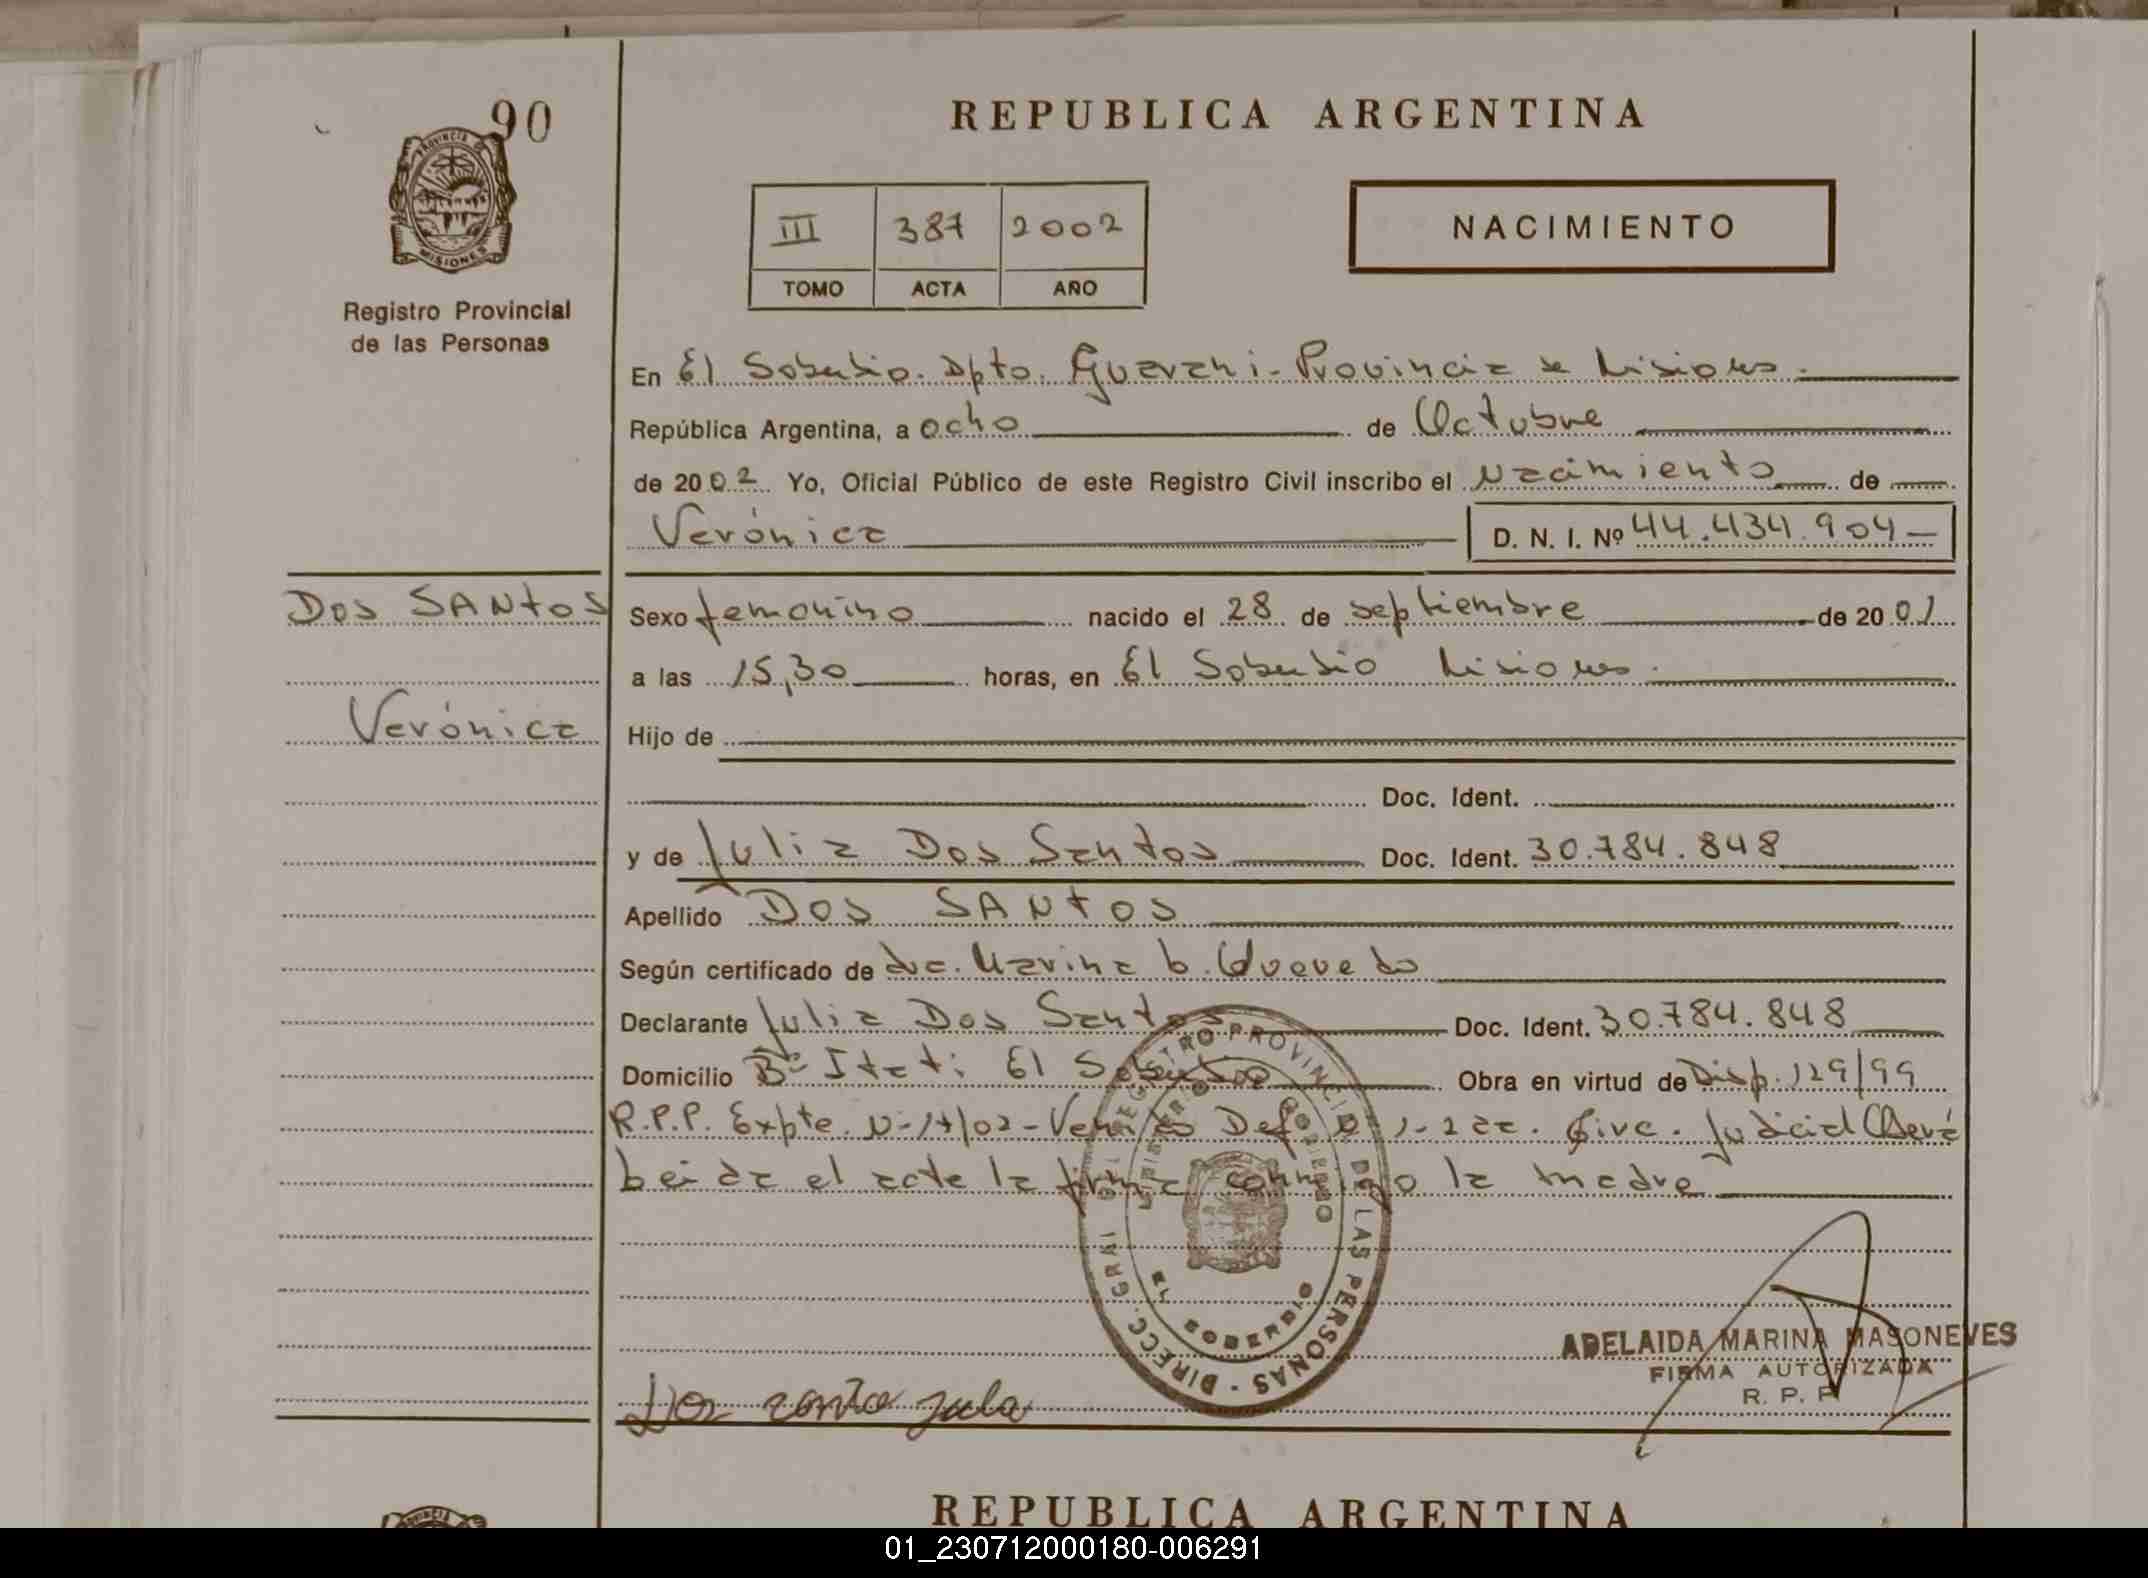 90
REPUBLICA ARGENTINA
PROVINCIA DE
MISIONES
Registro Provincial
de las Personas
III 387 2002
TOMO ACTA AÑO
NACIMIENTO
En El Soberbio. Dpto. Guarani - Provincia de Misiones.
República Argentina, a ocho de Octubre
de 2002 Yo, Oficial Público de este Registro Civil inscribo el Nacimiento de
Verónica D. N. I. Nº 44.434.904
DOS SANtOS
Verónica
Sexo femenino nacido el 28 de septiembre de 2001
a las 15,30 horas, en El Soberbio Misiones.
Hijo de
Doc. Ident.
y de Julia Dos Santos Doc. Ident. 30.784.848
Apellido DOS SANtOS
Según certificado de Marina Quevedo
Declarante Julia Dos Santos Doc. Ident. 30.784.848
Domicilio Bº Itati El Soberbio Obra en virtud de Disp. 129/99
R.P.P. Expte. Nº 17/02 - Judicial Oberá
leida el acta la firma conmigo la madre
DIRECC. GRAL. DEL REGISTRO PROVINCIAL DE LAS PERSONAS
MINISTERIO DE GOBIERNO
EL SOBERBIO
Dos santo
ADELAIDA MARINA MASONEVES
FIRMA AUTORIZADA
R. P. P.
REPUBLICA ARGENTINA
01_230712000180-006291